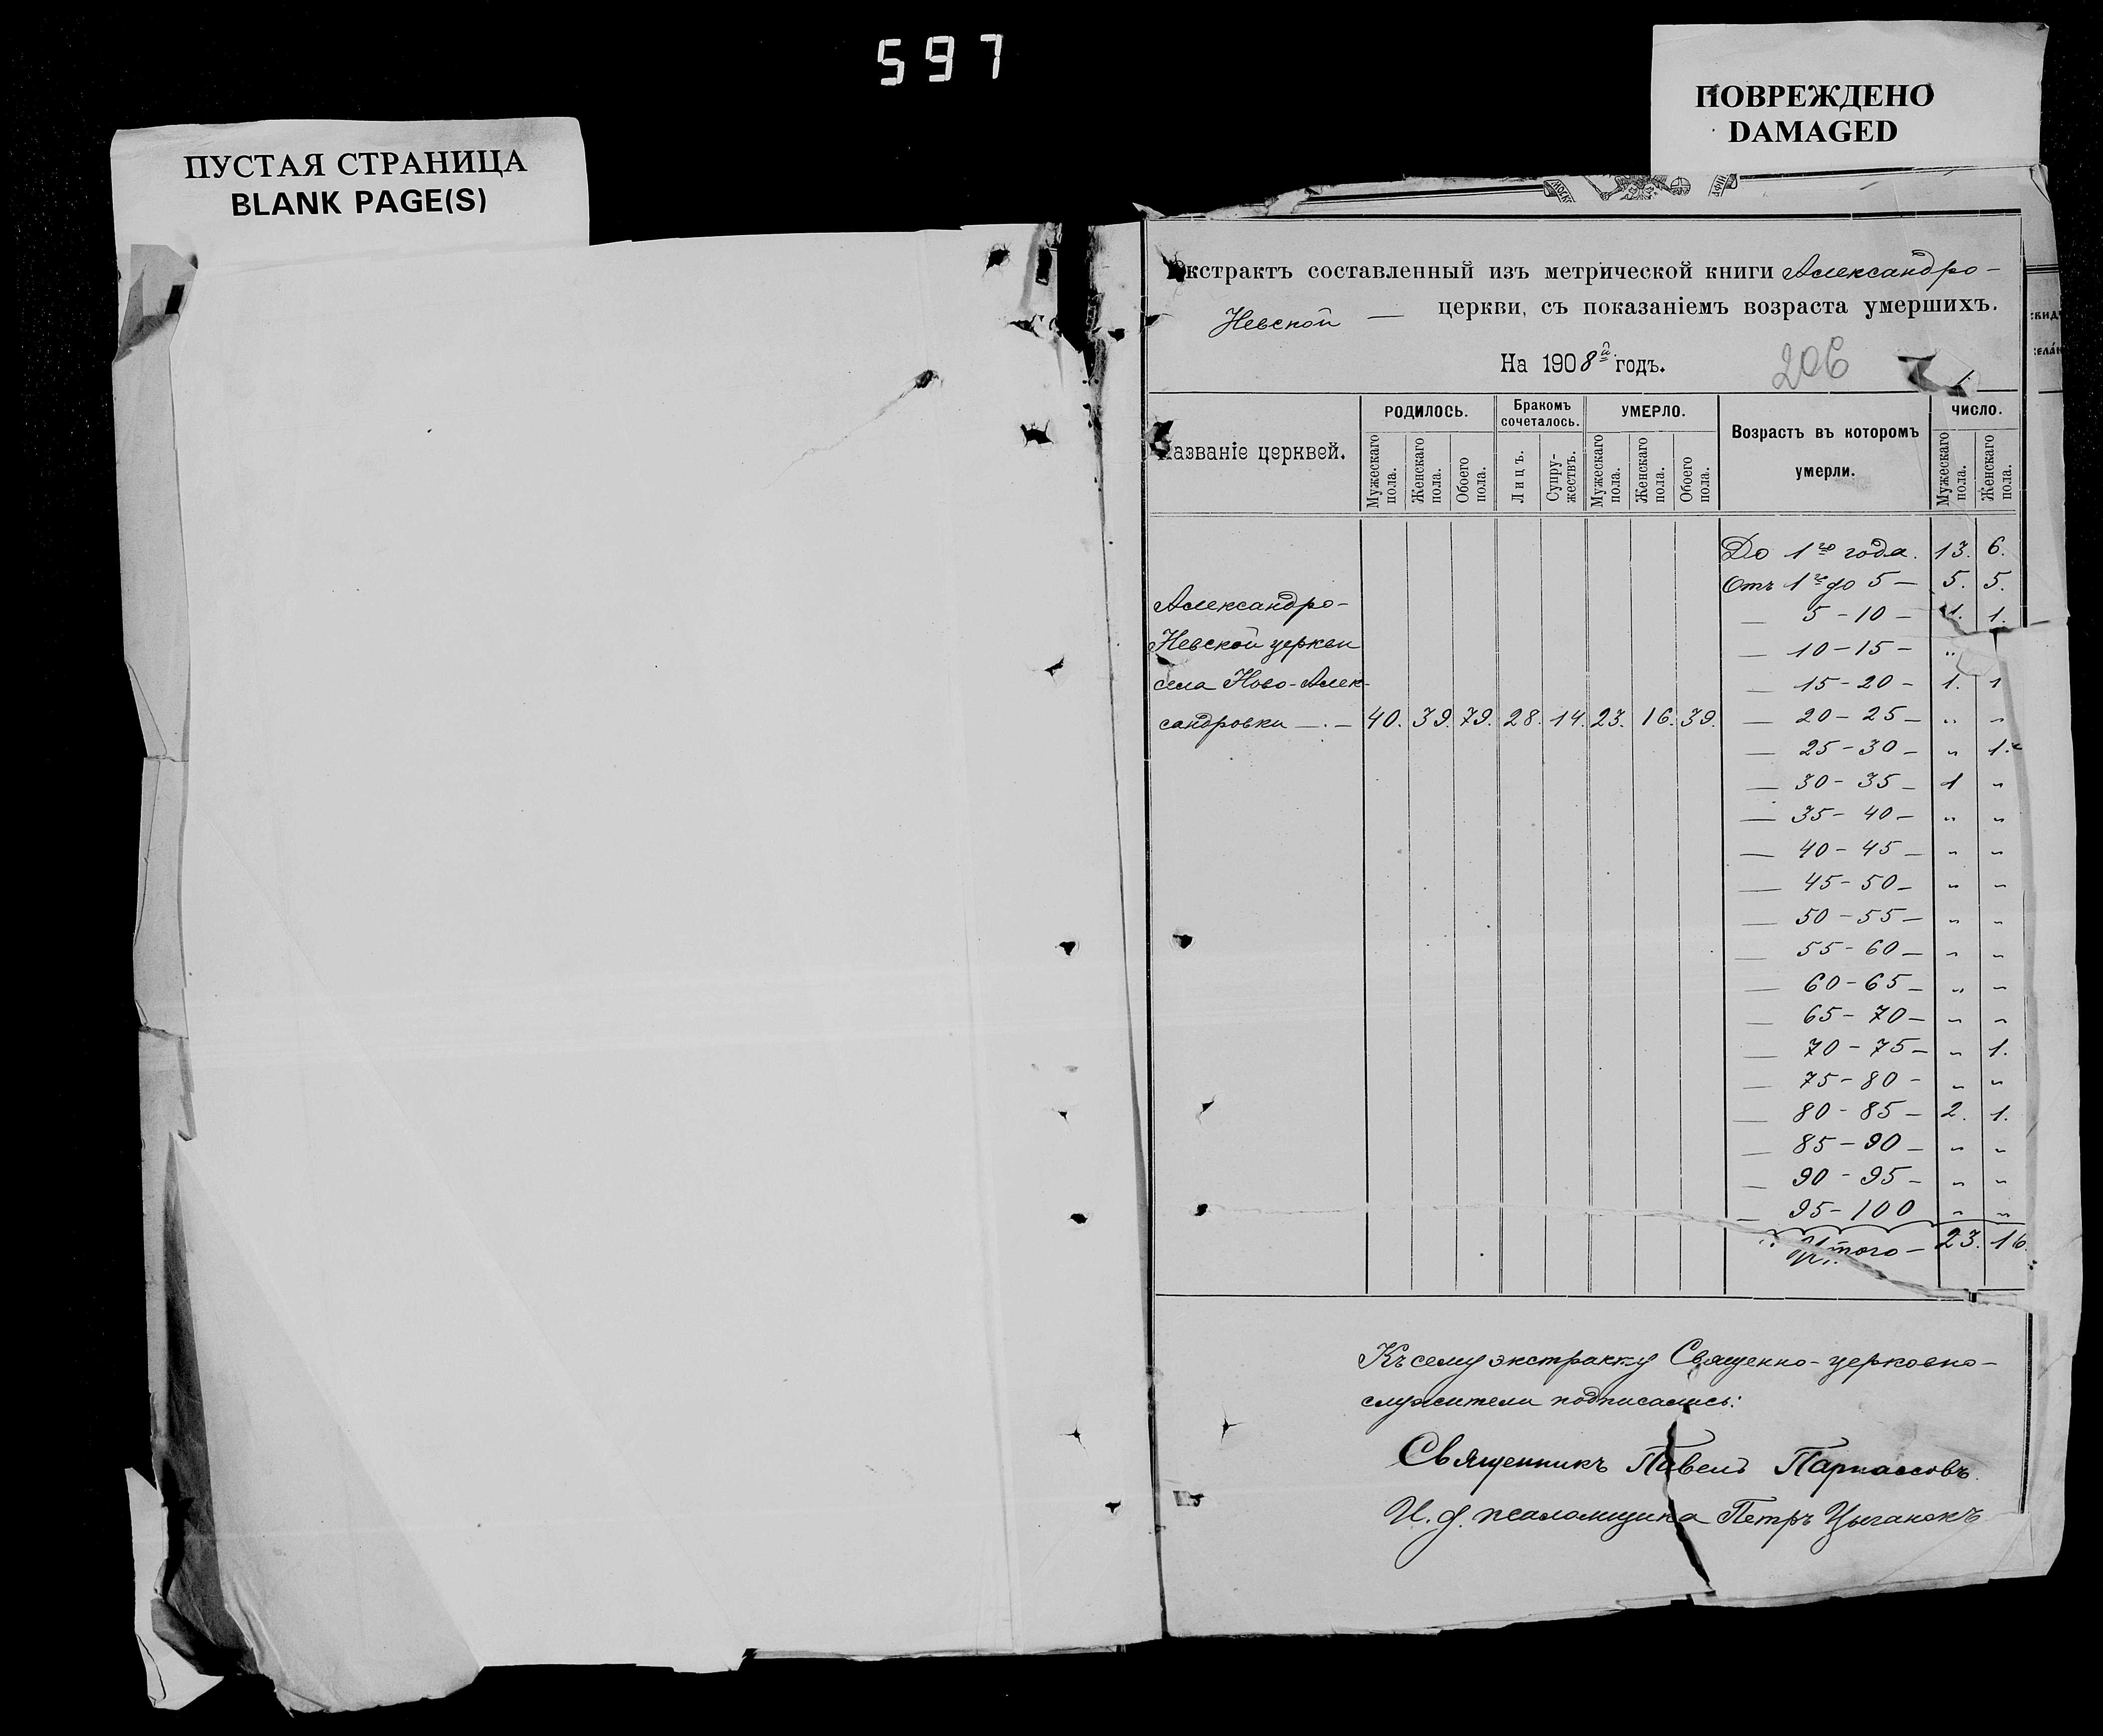 597
ПУСТАЯ СТРАНИЦА
BLANK PAGE(S)
ПОВРЕЖДЕНО
DAMAGED
Экстрактъ составленный изъ метрической книги Александро-
Невской — церкви, съ показаніемъ возраста умершихъ.
На 1908й годъ.
206
Названіе церквей.
РОДИЛОСЬ.
Бракомъ сочеталось.
УМЕРЛО.
Возрастъ въ которомъ умерли.
ЧИСЛО.
Мужескаго пола. Женскаго пола. Обоего пола. Лицъ. Супружествъ. Мужескаго пола. Женскаго пола. Обоего пола. Мужескаго пола. Женскаго пола.
До 1го года. 13. 6.
Отъ 1го до 5 — 5. 5.
— 5 - 10 — 1. 1.
— 10 - 15 — "
— 15 - 20 — 1. 1
— 20 - 25 — " "
— 25 - 30 — " 1.
— 30 - 35 — 1 "
— 35 - 40 — " "
— 40 - 45 — " "
— 45 - 50 — " "
— 50 - 55 — " "
— 55 - 60 — " "
— 60 - 65 — " "
— 65 - 70 — " "
— 70 - 75 — " 1.
— 75 - 80 — " "
— 80 - 85 — 2. 1.
— 85 - 90 — " "
— 90 - 95 — " "
— 95 - 100 " "
Итого — 23. 16.
Александро-
Невской церкви
села Ново-Алек-
сандровки — . — 40. 39. 79. 28. 14. 23. 16. 39.
Къ сему экстракту Священно-церковно-
служители подписались:
Священникъ Павелъ Парнассовъ.
И. д. псаломщика Петръ Цыганокъ